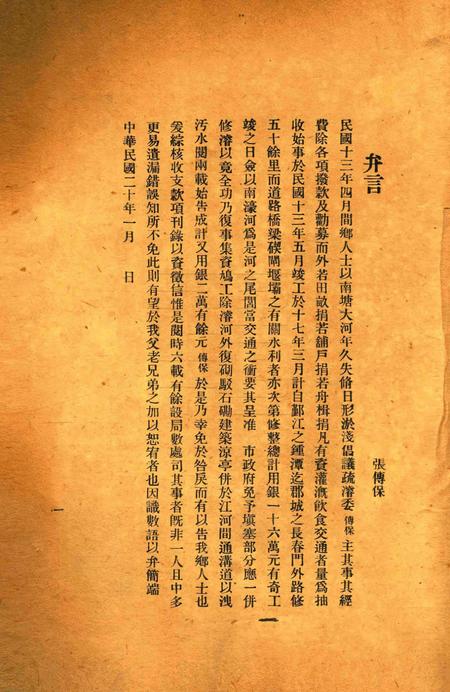 弁言
張傳保
民國十三年四月間鄉人士以南塘大河年久失脩日形淤淺倡議疏濬委傳保主其事其經
費除各項撥款及勸募而外若田畝捐若舖戶捐若舟楫捐凡有資灌漑飲食交通者量爲抽
收始事於民國十三年五月竣工於十七年三月計自鄞江之鍾潭迄郡城之長春門外路修
五十餘里而道路橋梁碶閘堰壩之有關水利者亦次第修整總計用銀一十六萬元有奇工
竣之日僉以南濠河爲是河之尾閭當交通之衝要其呈准　市政府免予塡塞部分應一併
修濬以竟全功乃復事集資鳩工除濬河外復砌駁石磡建築涼亭併於江河間通溝道以洩
汚水閱兩載始告成計又用銀二萬有餘元傳保於是乃幸免於咎戾而有以告我鄉人士也
爰綜核收支款項刊錄以資徵信惟是閱時六載有餘設局數處司其事者旣非一人且中多
更易遺漏錯誤知所不免此則有望於我父老兄弟之加以恕宥者也因識數語以弁簡端
中華民國二十年一月　日
一